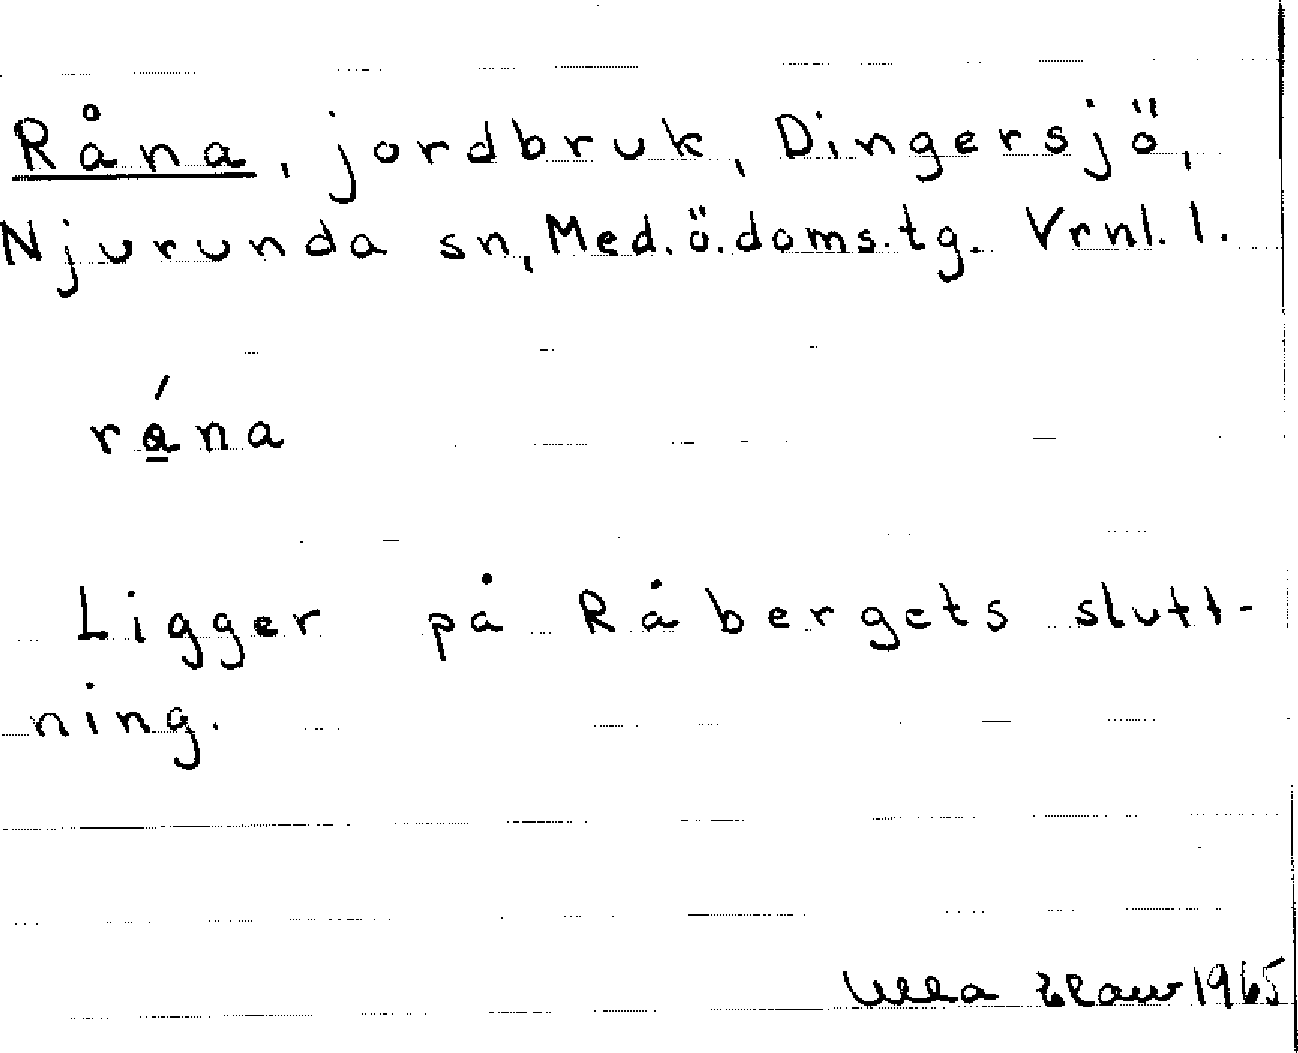 Råna, jordbruk, Dingersjö,
Njurunda sn, Med.ö.doms.tg. Vrnl. l.
rána
Ligger på Råbergets slutt-
ning.
Ulla 1965